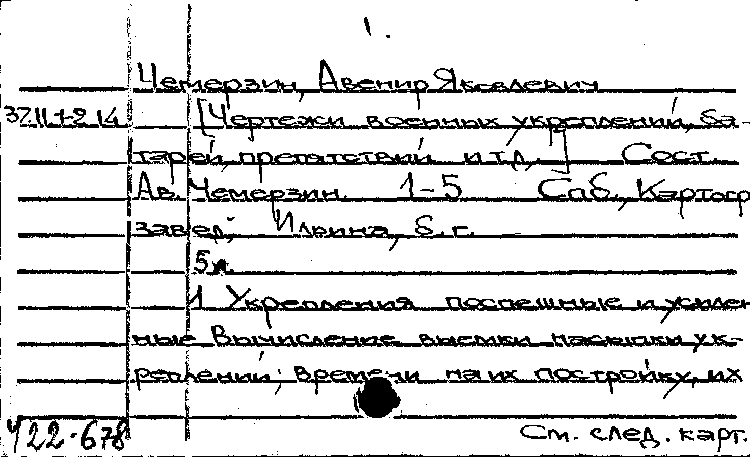 1.
Чемерзин, Авенир Яковлевич
37.11.1-2.14 [Чертежи военных укреплений, ба-
тарей, препятствий и т.д.] Сост.
Ав. Чемерзин. 1-5 Спб., Картогр.
завед. Ильина, б.г.
5 л.
1 Укрепления поспешные и усилен-
ные Вычисление выемки насыпки ук-
реплений; времени на их постройку, их
У22-678 См. след. карт.